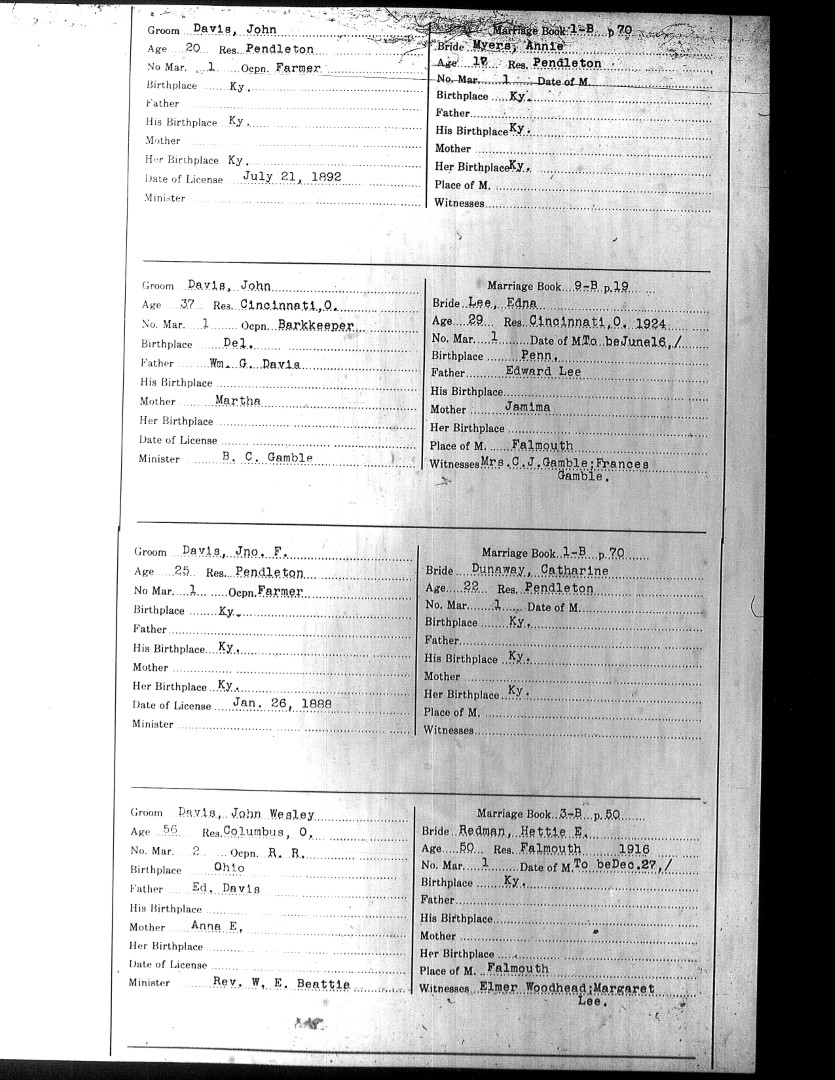 Groom Davis, John
Age 20 Res. Pendleton
No Mar. 1 Ocpn. Farmer
Birthplace Ky.
Father
His Birthplace Ky.
Mother
Her Birthplace Ky.
Date of License July 21, 1892
Minister
Marriage Book 1-B p 70
Bride Myers, Annie
Age Res. Pendleton
No. Mar. 1 Date of M.
Birthplace Ky.
Father
His Birthplace Ky.
Mother
Her Birthplace Ky.
Place of M.
Witnesses
Groom Davis, John
Age 37 Res. Cincinnati,O.
No. Mar. 1 Ocpn. Barkkeeper
Birthplace Del.
Father Wm. G. Davis
His Birthplace
Mother Martha
Her Birthplace
Date of License
Minister B. C. Gamble
Marriage Book 9-B p.19
Bride Lee, Edna
Age 29 Res. Cincinnati,O. 1924
No. Mar. 1 Date of M.To beJune16,/
Birthplace Penn.
Father Edward Lee
His Birthplace
Mother Jamima
Her Birthplace
Place of M. Falmouth
Witnesses Mrs.C.J.Gamble;Frances
Gamble.
Groom Davis, Jno. F.
Age 25 Res. Pendleton
No Mar. 1 Ocpn. Farmer
Birthplace Ky.
Father
His Birthplace Ky.
Mother
Her Birthplace Ky.
Date of License Jan. 26, 1888
Minister
Marriage Book 1-B p. 70
Bride Dunaway, Catharine
Age 22 Res. Pendleton
No. Mar. 1 Date of M.
Birthplace Ky.
Father
His Birthplace Ky.
Mother
Her Birthplace Ky.
Place of M.
Witnesses
Groom Davis, John Wesley
Age 56 Res. Columbus, O.
No. Mar. 2 Ocpn. R. R.
Birthplace Ohio
Father Ed. Davis
His Birthplace
Mother Anna E.
Her Birthplace
Date of License
Minister Rev. W. E. Beattie
Marriage Book 3-B p. 50
Bride Redman, Hettie E.
Age 50 Res. Falmouth 1916
No. Mar. 1 Date of M.To beDec.27,/
Birthplace Ky.
Father
His Birthplace
Mother
Her Birthplace
Place of M. Falmouth
Witnesses Elmer Woodhead;Margaret
Lee.